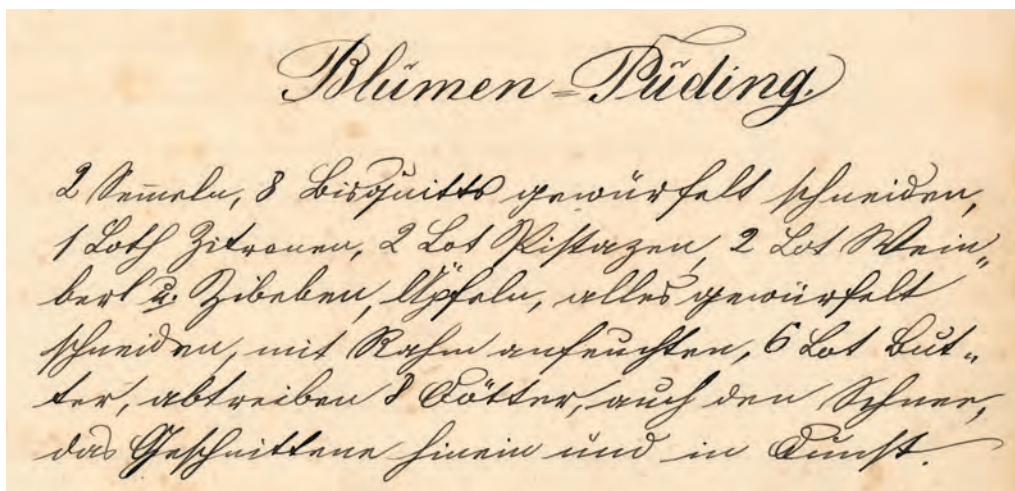 Blumen-Puding.
2 Semmeln, 8 Bisquitts gewürfelt schneiden,
1 Loth Zitronen, 2 Lot Pistazen, 2 Lot Wein„
berl u. Zibeben, Äpfeln, alles gewürfelt
schneiden, mit Rahm anfeuchten, 6 Lot But„
ter, abtreiben 8 Dötter, auch den Schnee,
das Geschnittene hinein und in Dunst.